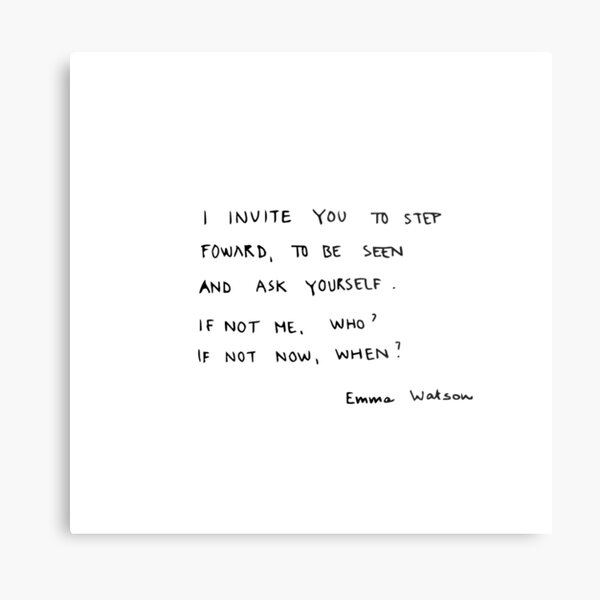 I INVITE YOU TO STEP
FOWARD, TO BE SEEN
AND ASK YOURSELF.
IF NOT ME, WHO?
IF NOT NOW, WHEN?
Emma Watson